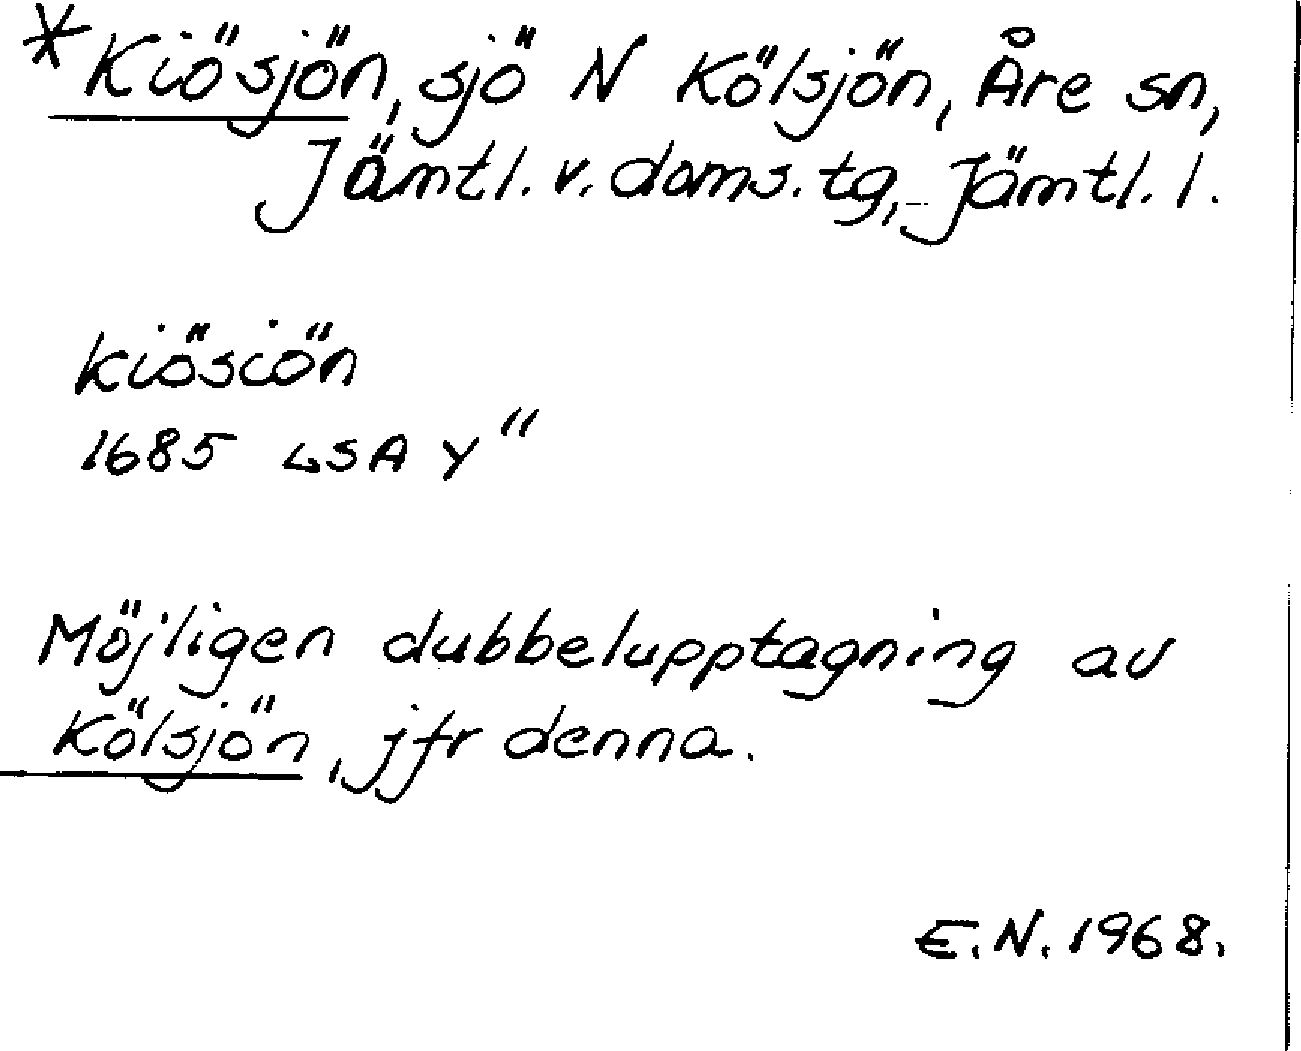 *Kiösjön, sjö N Kölsjön, Åre sn,
Jämtl. v. doms. tg, Jämtl. l.
Kiösiön
1685 LSA Y"
Möjligen dubbelupptagning av
Kölsjön, jfr denna.
E.N. 1968.